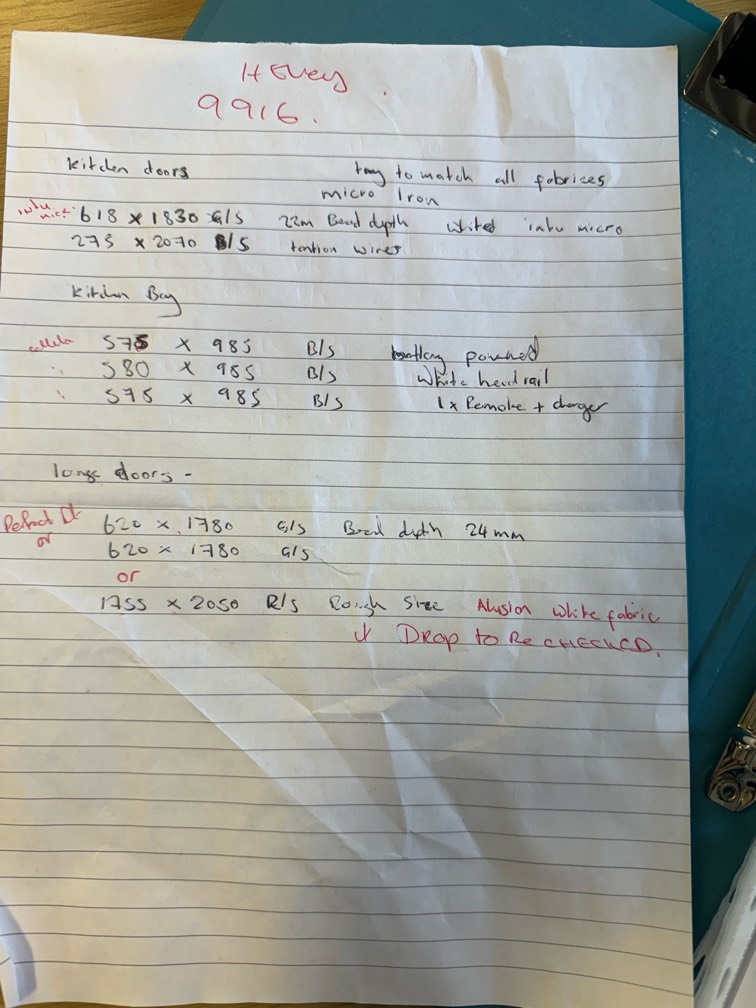 Hevey
9916.
Kitchen doors try to match all fabrices
micro Iron
intu micr 618 x 1830 G/S 22m Bead depth White intu micro
275 x 2070 B/S tention wires
Kitchen Bay
575 x 985 B/S battery powered
580 x 985 B/S White headrail
575 x 985 B/S 1x Remote + charger
lounge doors -
Perfect 620 x 1780 G/S Bead depth 24mm
or 620 x 1780 G/S
or
1755 x 2050 R/S Rough Size Alusion white fabric
Drop to Be CHECKED.